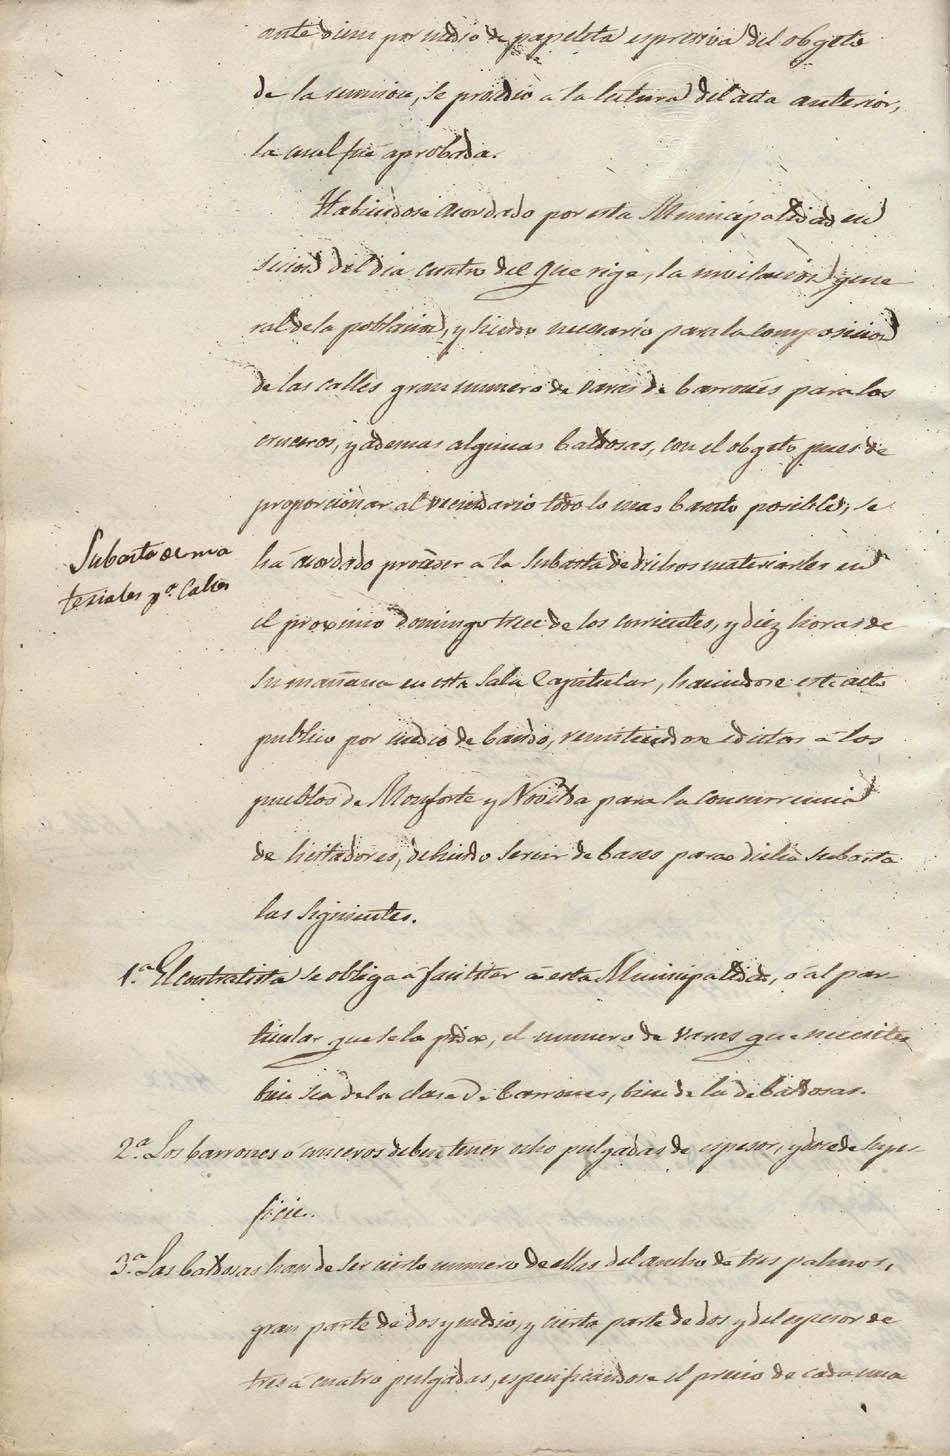 ante diem por medio de papeleta espresiva del obgeto
de la reunion, se prosedio a la lectura del acta anterior,
la cual fué aprobada.
Habiendose acordado por esta Municipalidad en
sesion del dia cuatro del que rige, la nivelacion gene
ral de la poblacion, y siendo necesario para la composicion
de las calles gran numero de varas de barrones para los
cruceros, y ademas algunas baldosas, con el obgeto pues de
proporcionar al vecindario todo lo mas barato posible, se
Subasta de ma
teriales pª. Calles
ha acordado proceder a la subasta de dichos materiales en
el proximo domingo trece de los corrientes, y diez horas de
su mañana en esta Sala Capitular, haciendose este acto
publico por medio de bando, remitiendose edictos á los
pueblos de Monforte y Novelda para la concurrencia
de licitadores, debiendo servir de bases para dicha subasta
las siguientes.
1.ª El contratista se obliga a facilitar a esta Municipalidad, ó al par-
ticular que se lo pida, el numero de varas que necesite
bien sea de la clase de barrones, bien de la de baldosas.
2.ª Los barrones ó cruceros deben tener ocho pulgadas de espesor, y doce de super-
ficie.
3.ª Las baldosas han de ser cierto numero de ellas del ancho de tres palmos,
gran parte de dos y medio, y cierta parte de dos y del espesor de
tres a cuatro pulgadas, especificandose el precio de cada una